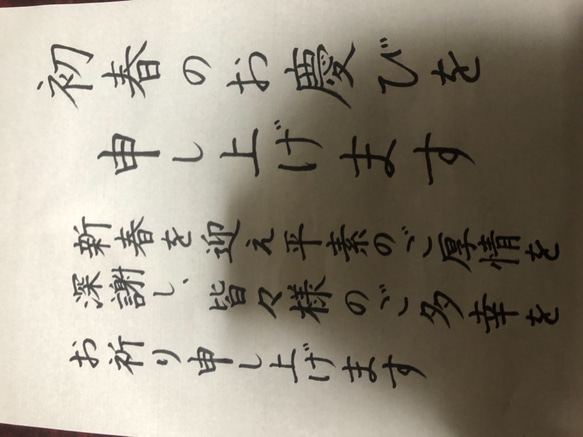 初春のお慶びを
申し上げます
新春を迎え平素のご厚情を
深謝し、皆々様のご多幸を
お祈り申し上げます